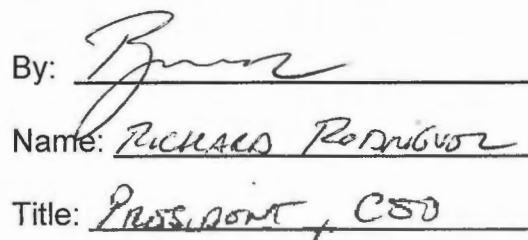 By:
Name: RICHARD RODRIGUEZ
Title: PRESIDENT, CEO